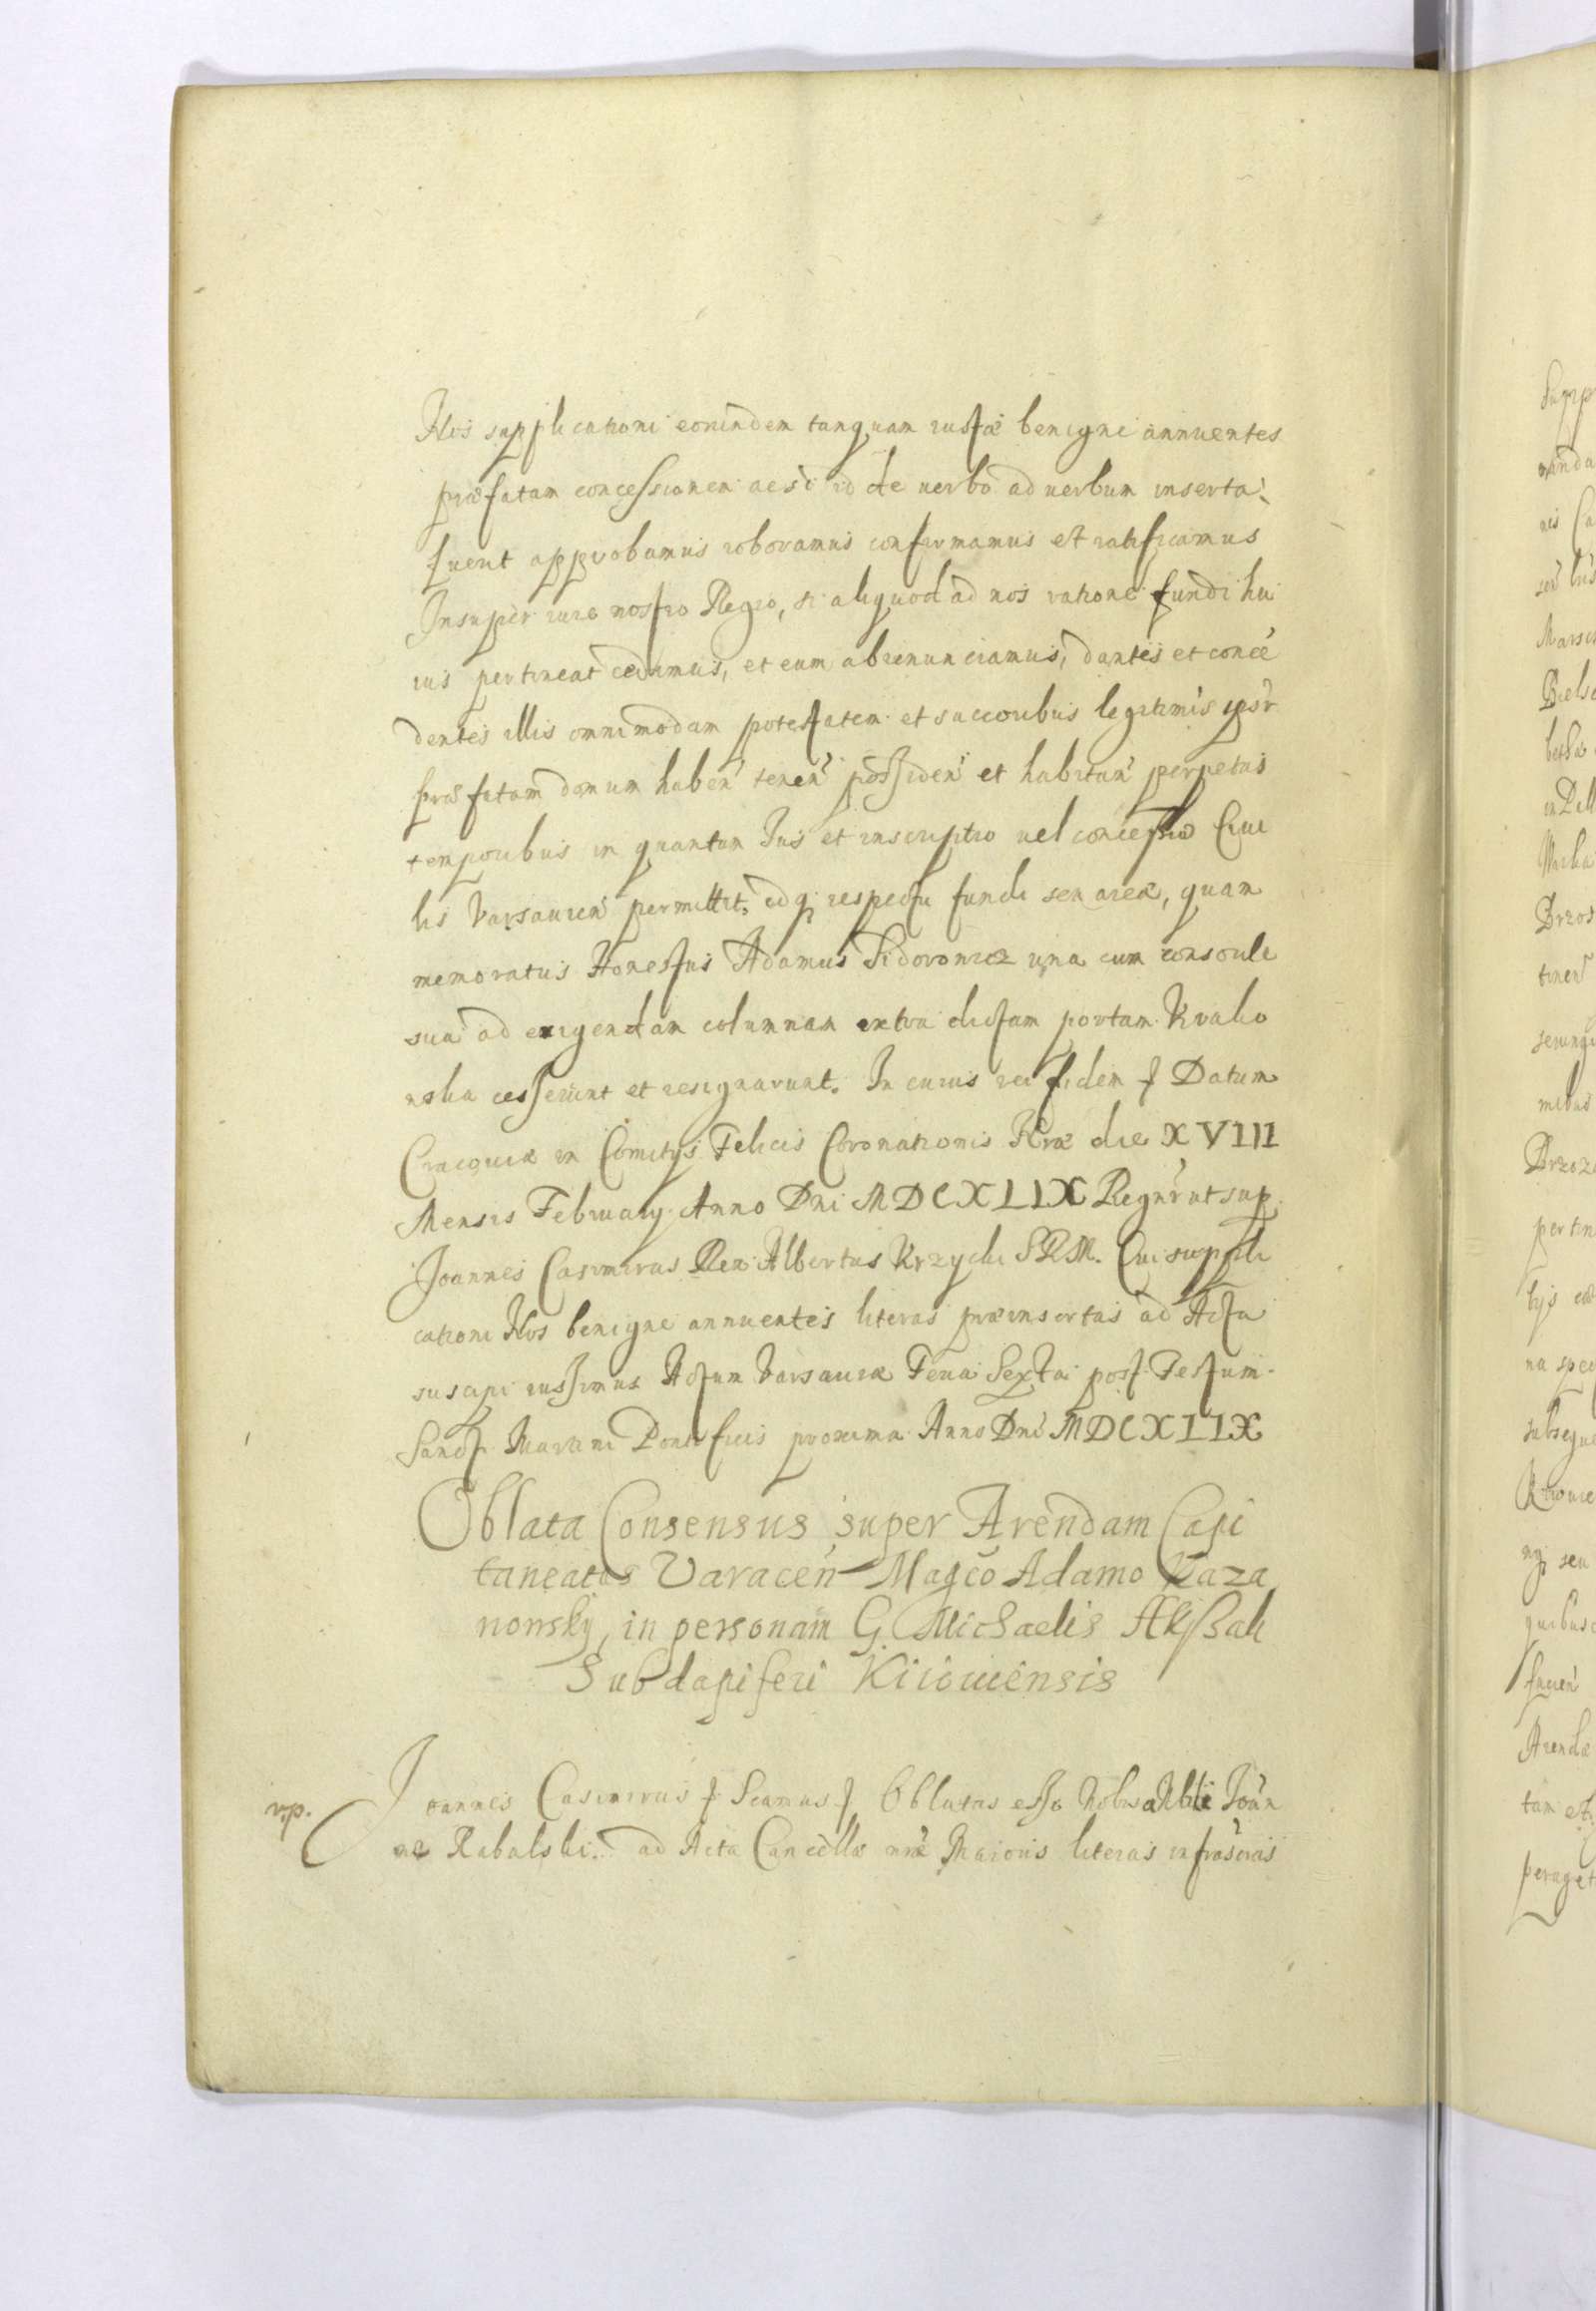 Nos supplicationi eorundem tanquam iustæ benigne annuentes
præfatam concessionem acsi id de uerbo ad uerbum inserta
fuerit approbamus roboramus confirmamus et ratificamus
Insuper iure nostro Regio, si aliquod ad nos ratione fundi hu
ius pertineat cedimus, et eum abrenunciamus, dantes et conce
dentes illis omnimodam potestatem et succoribus legitimis ipsor
præfatam domum haben tenen possiden et habitan perpetuis
temporibus in quantum Ius et inscriptio uel concessio Ciui
lis Varsauien permittit, idq respectu fundi seu areæ, quam
memoratus Honestus Adamus Sidorowicz una cum consorte
sua ad erigendam columnam extra dictam portam Krako
wska cesserunt et resignarunt. In cuius rei fidem f Datum
Cracouiæ in Comitijs Felicis Coronationis Nræ die XVIII
Mensis February Anno Dni MDCXLIX Regnor ut sup
Joannes Casimirus Rex Albertus Krzycki SRM. Cui suppli
cationi Nos benigne annuentes literas præinsertas ad Acta
suscipi iussimus Actum Varsauiæ Feria Sexta post Festum
Sancti Martini Pontificis proxima Anno Dni MDCXLIX
Oblata Consensus super Arendam Capi
taneatus Varacen Magco Adamo Kaza
nowsky, in personam G. Michaelis Akssak
Subdapiferi Kiiouiensis
v.p. Joannes Casimirus f Seamus f Oblatas esse Nobis a Nbili Joan
ne Rabalski ad Acta Cancellæ nræ Maioris literas infrascras